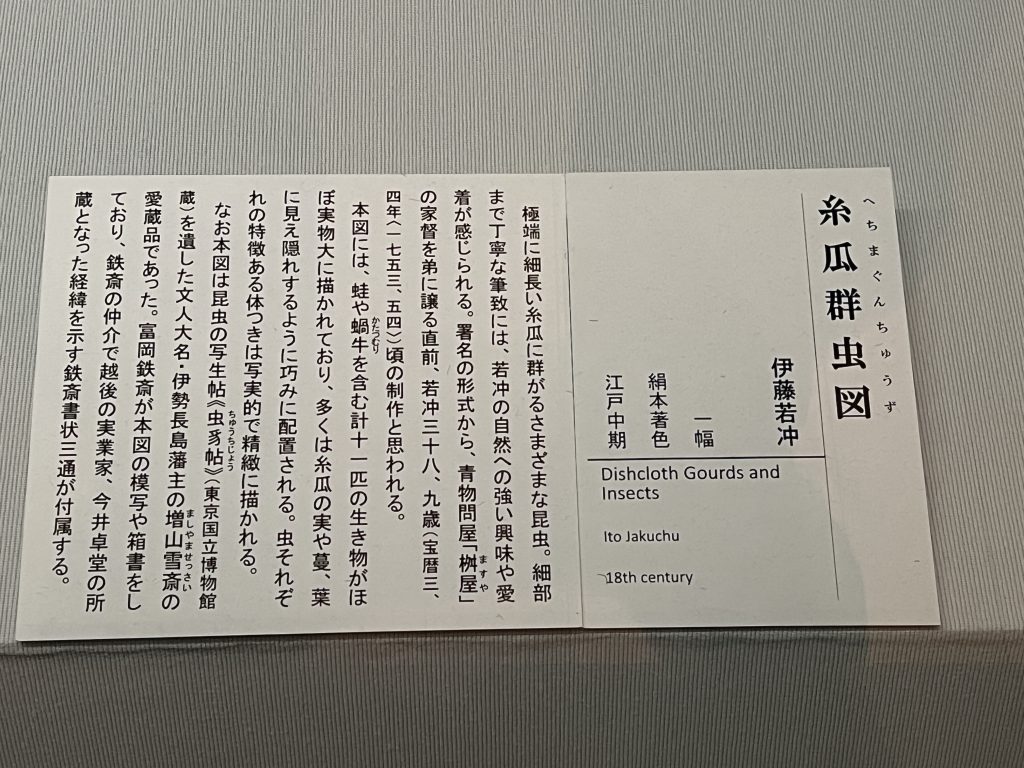 へちまぐんちゅうず
糸瓜群虫図
伊藤若冲
一幅
絹本著色
江戸中期
Dishcloth Gourds and
Insects
Ito Jakuchu
18th century
極端に細長い糸瓜に群がるさまざまな昆虫。細部
まで丁寧な筆致には、若冲の自然への強い興味や愛
着が感じられる。署名の形式から、青物問屋「桝屋」
ますや
の家督を弟に譲る直前、若冲三十八、九歳(宝暦三、
四年〈一七五三、五四〉)頃の制作と思われる。
本図には、蛙や蝸牛を含む計十一匹の生き物がほ
かたつむり
ぼ実物大に描かれており、多くは糸瓜の実や蔓、葉
に見え隠れするように巧みに配置される。虫それぞ
れの特徴ある体つきは写実的で精緻に描かれる。
なお本図は昆虫の写生帖《虫豸帖》(東京国立博物館
ちゅうちじょう
蔵)を遺した文人大名・伊勢長島藩主の増山雪斎の
ましやませっさい
愛蔵品であった。富岡鉄斎が本図の模写や箱書をし
ており、鉄斎の仲介で越後の実業家、今井卓堂の所
蔵となった経緯を示す鉄斎書状三通が付属する。